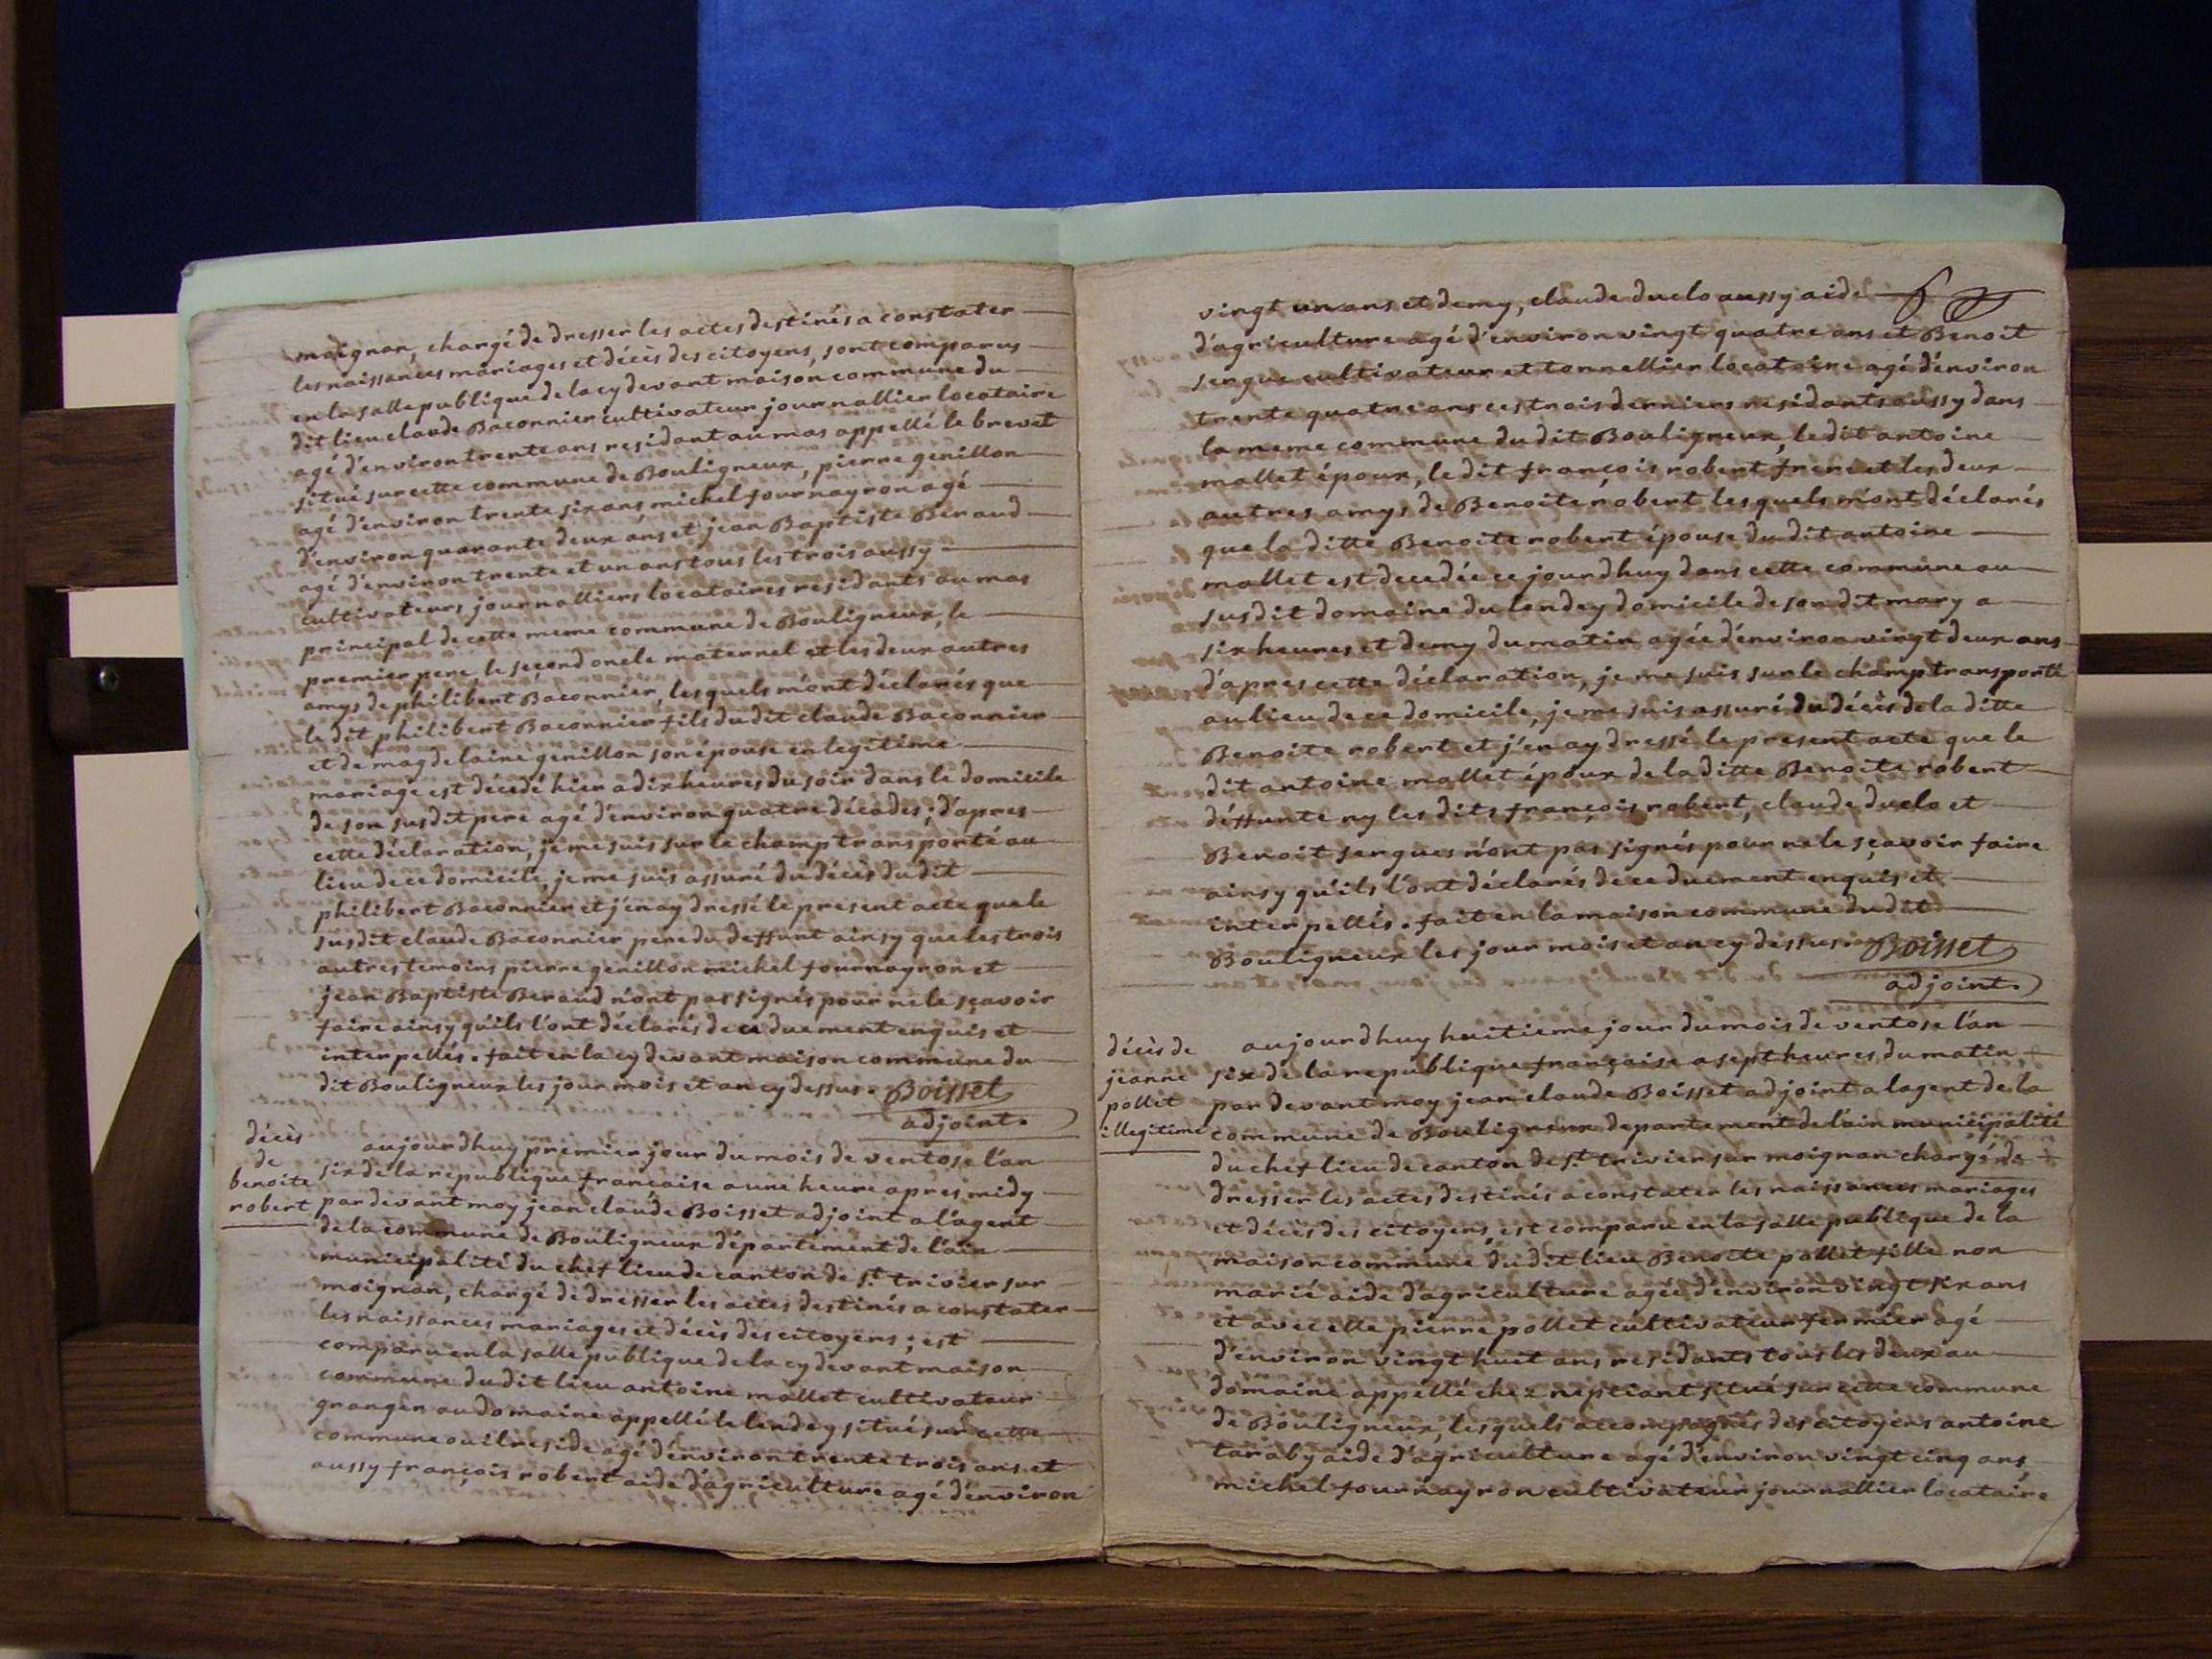 moignan, chargé de dresser les actes destinés a constater
les naissances mariages et décès des citoyens, sont comparus
en la salle publique de la cy devant maison commune du
dit lieu claude Baconnier cultivateur journallier locataire
agé d'environ trente ans residant au mas appellé le brevet
situé sur cette commune de Bouligneux, pierre genillon
agé d'environ trente six ans michel fournayron agé
d'environ quarante deux ans et jean Baptiste Beraud
agé d'environ trente et un ans tous les trois aussy
cultivateurs journalliers locataires residants au mas
principal de cette meme commune de Bouligneux, le
premier pere, le second oncle maternel et les deux autres
amys de philibert Baconnier, lesquels m'ont déclarés que
le dit philibert Baconnier fils du dit claude Baconnier
et de magdelaine genillon son épouse en legitime
mariage est décedé hier a dix heures du soir dans le domicile
de son susdit pere agé d'environ quatre décades; d'apres
cette déclaration, je me suis sur le champ transporté au
lieu de ce domicile, je me suis assuré du décès du dit
philibert Baconnier et j'en ay dressé le present acte que le
susdit claude Baconnier pere du deffunt ainsy que les trois
autres temoins pierre genillon michel fournayron et
jean Baptiste Beraud n'ont pas signés pour ne le sçavoir
faire ainsy qu'ils l'ont déclarés de ce duement enquis et
interpellés. fait en la cy devant maison commune du
dit Bouligneux les jour mois et an cy dessus. Boisset
adjoint.
décès
de
benoite
robert
aujourdhuy premier jour du mois de ventose l'an
six de la republique francaise a une heure apres midy
par devant moy jean claude Boisset adjoint a l'agent
de la commune de Bouligneux département de l'ain
municipalité du chef lieu de canton de st. trivier sur
moignan, chargé de dresser les actes destinés a constater
les naissances mariages et décès des citoyens; est
comparu en la salle publique de la cy devant maison
commune du dit lieu antoine mallet cultivateur
granger au domaine appellé le lendey situé sur cette
commune ou il reside agé d'environ trente trois ans et
aussy françois robert aide d'agriculture agé d'environ
vingt un ans et demy, claude duclo aussy aide
d'agriculture agé d'environ vingt quatre ans et Benoit
sergue cultivateur et tonnellier locataire agé d'environ
trente quatre ans ces trois derniers residants aussy dans
la meme commune du dit Bouligneux, le dit antoine
mallet époux, le dit françois robert frere et les deux
autres amys de Benoite robert lesquels m'ont déclarés
que la ditte Benoite robert épouse du dit antoine
mallet est decedée ce jourdhuy dans cette commune au
susdit domaine du lendey domicile de son dit mary a
six heures et demy du matin agée d'environ vingt deux ans
d'apres cette déclaration, je me suis sur le champ transporté
au lieu de ce domicile, je me suis assuré du décès de la ditte
Benoite robert et j'en ay dressé le present acte que le
dit antoine mallet époux de la ditte Benoite robert
déffunte ny les dits françois robert, claude duclo et
Benoit sergues n'ont pas signés pour ne le sçavoir faire
ainsy qu'ils l'ont déclarés de ce duement enquis et
interpellés. fait en la maison commune du dit
Bouligneux les jour mois et an cy dessus. Boisset
adjoint.
décès de
jeanne
pollet
illegitime
aujourdhuy huitieme jour du mois de ventose l'an
six de la republique française a sept heures du matin
par devant moy jean claude Boisset adjoint a lagent de la
commune de Bouligneux departement de l'ain municipalité
du chef lieu de canton de st. trivier sur moignan chargé de
dresser les actes destinés a constater les naissances mariages
et décès des citoyens, est comparu en la salle publique de la
maison commune du dit lieu Benoite pollet fille non
marié aide d'agriculture agée d'environ vingt six ans
et avec elle pierre pollet cultivateur fermier agé
d'environ vingt huit ans residants tous les deux au
domaine appellé chez neptiant situé sur cette commune
de Bouligneux, lesquels accompagnés des citoyens antoine
taraby aide d'agriculture agé d'environ vingt cinq ans
michel fournayron cultivateur journallier locataire